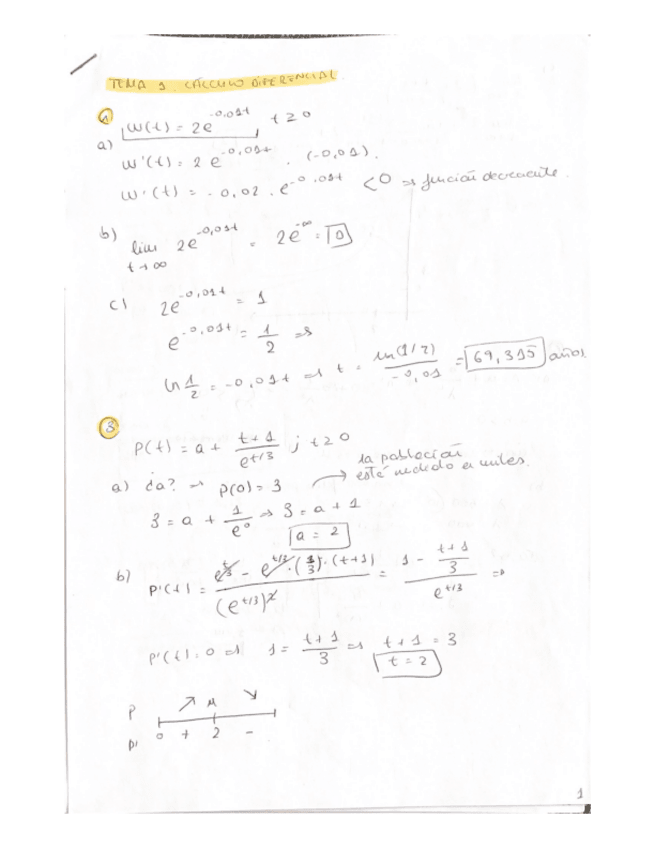 TEMA 1. CÁLCULO DIFERENCIAL.
1
a) W(t) = 2e^-0,01t, t ≥ 0
W'(t) = 2 e^-0,01t · (-0,01).
W'(t) = -0,02 · e^-0,01t < 0 ⇒ función decreciente.
b) lim t→∞ 2e^-0,01t = 2e^-∞ = 0
c) 2e^-0,01t = 1
e^-0,01t = 1/2 ⇒
ln 1/2 = -0,01t ⇒ t = ln(1/2)/-0,01 = 69,315 años
3
P(t) = a + (t+1)/e^t/3 ; t ≥ 0
a) ¿a? → P(0) = 3 → la población está medida en miles.
3 = a + 1/e^0 ⇒ 3 = a + 1
a = 2
b) P'(t) = (e^t/3 - e^t/3 · (1/3) · (t+1))/(e^t/3)^2 = (1 - (t+1)/3)/e^t/3 ⇒
P'(t) = 0 ⇒ 1 = (t+1)/3 ⇒ t+1 = 3
t = 2
P ↗ M ↘
P' 0 + 2 -
1